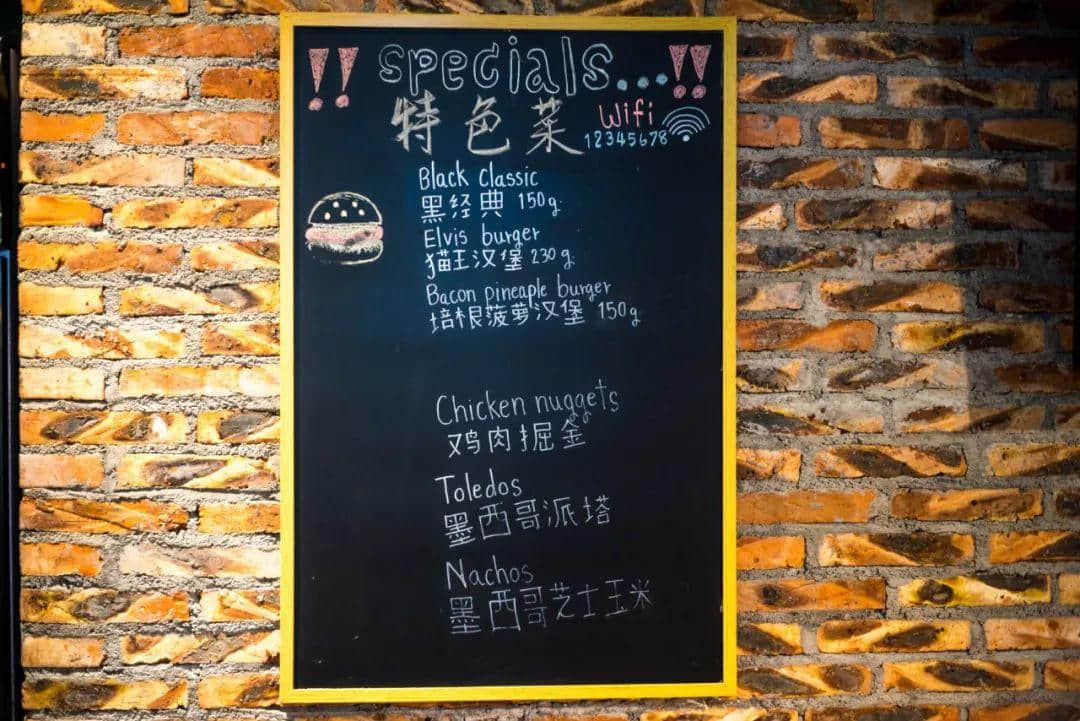 !! specials... !!
特色菜
Wifi
12345678
Black Classic
黑经典 150g.
Elvis burger
猫王汉堡 230g.
Bacon pineapple burger
培根菠萝汉堡 150g
Chicken nuggets
鸡肉掘金
Toledos
墨西哥派塔
Nachos
墨西哥芝士玉米